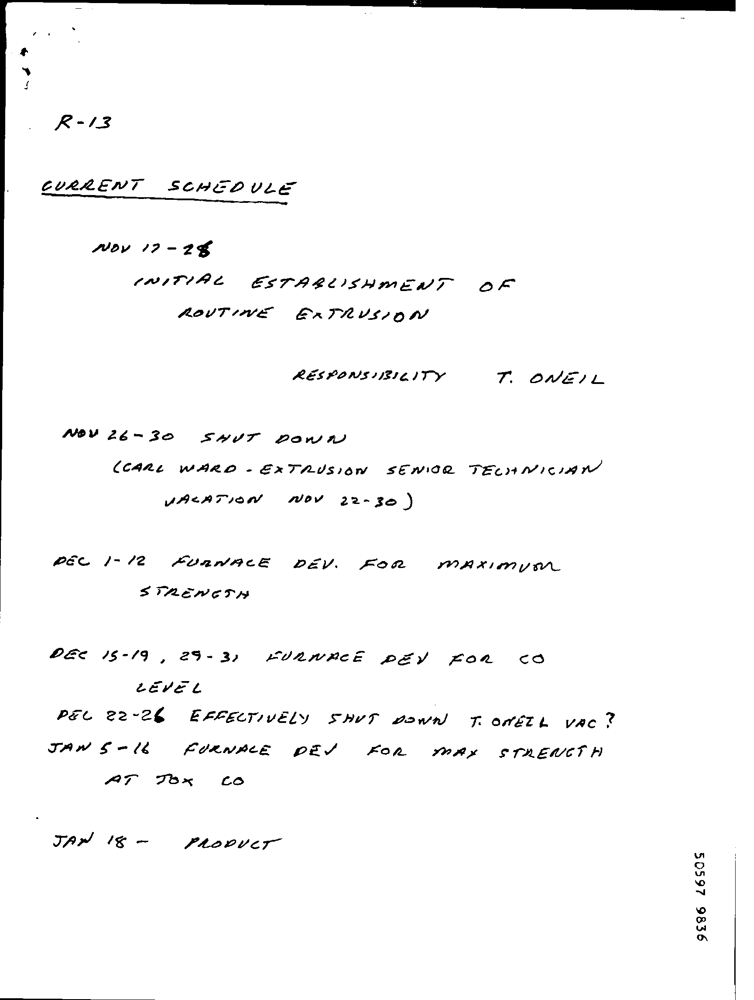 R-13
CURRENT SCHEDULE
NOV 17-28
INITIAL ESTABLISHMENT OF
ROUTINE EXTRUSION
RESPONSIBILITY T. ONEIL
NOV 26-30 SHUT DOWN
(CARL WARD - EXTRUSION SENIOR TECHNICIAN
VACATION NOV 22-30)
DEC 1-12 FURNACE DEV. FOR MAXIMUM
STRENGTH
DEC 15-19, 29-31 FURNACE DEV FOR CO
LEVEL
DEC 22-26 EFFECTIVELY SHUT DOWN T. ONEIL VAC?
JAN 5-16 FURNACE DEV FOR MAX STRENGTH
AT CO
JAN 18- PRODUCT
50597 9836